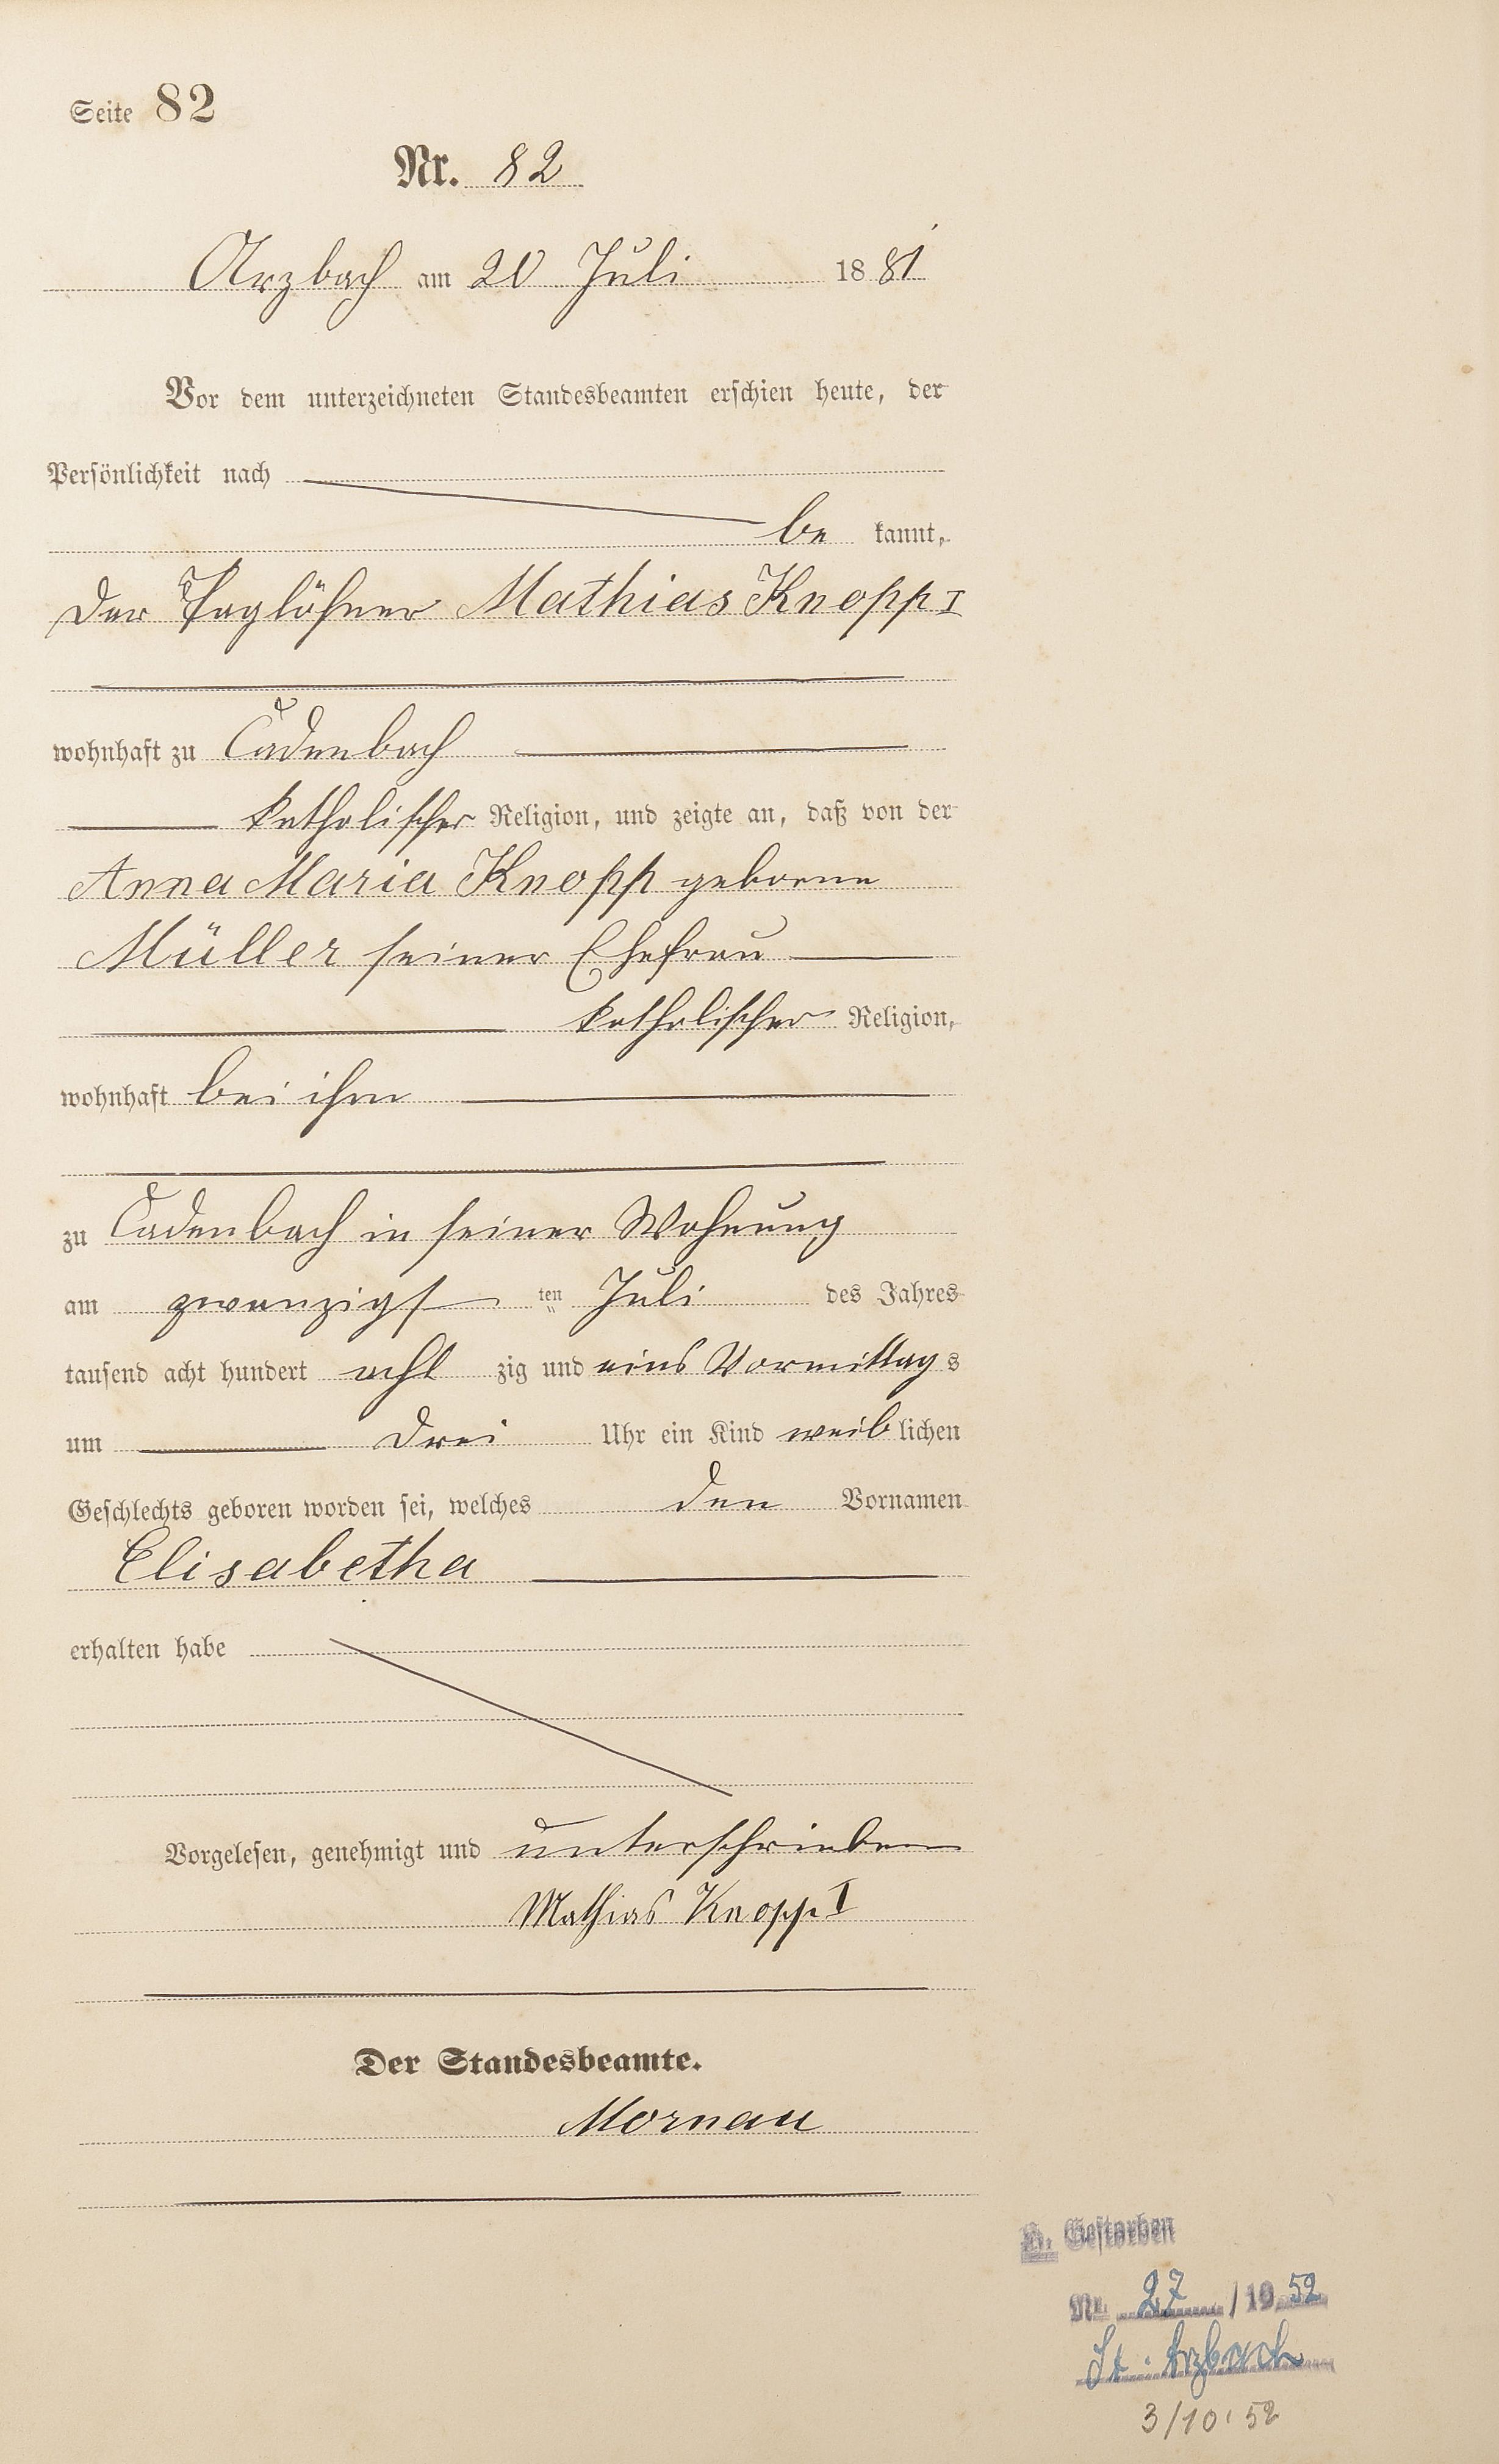 Seite 82
Nr. 82
Arzbach am 20 Juli 1881
Vor dem unterzeichneten Standesbeamten erschien heute, der
Persönlichkeit nach
be kannt,
der Taglöhner Mathias Knopp I
wohnhaft zu Cadenbach
katholischer Religion, und zeigte an, daß von der
Anna Maria Knopp geborene
Müller seiner Ehefrau
katholischer Religion,
wohnhaft bei ihm
zu Cadenbach in seiner Wohnung
am zwanzigst ten Juli des Jahres
tausend acht hundert acht zig und eins Vormittag s
um drei Uhr ein Kind weib lichen
Geschlechts geboren worden sei, welches den Vornamen
Elisabetha
erhalten habe
Vorgelesen, genehmigt und unterschrieben
Mathias Knopp I
Der Standesbeamte.
Mornau
Gestorben
Nr. 27 / 1952
St. Arzbach
3/10.52